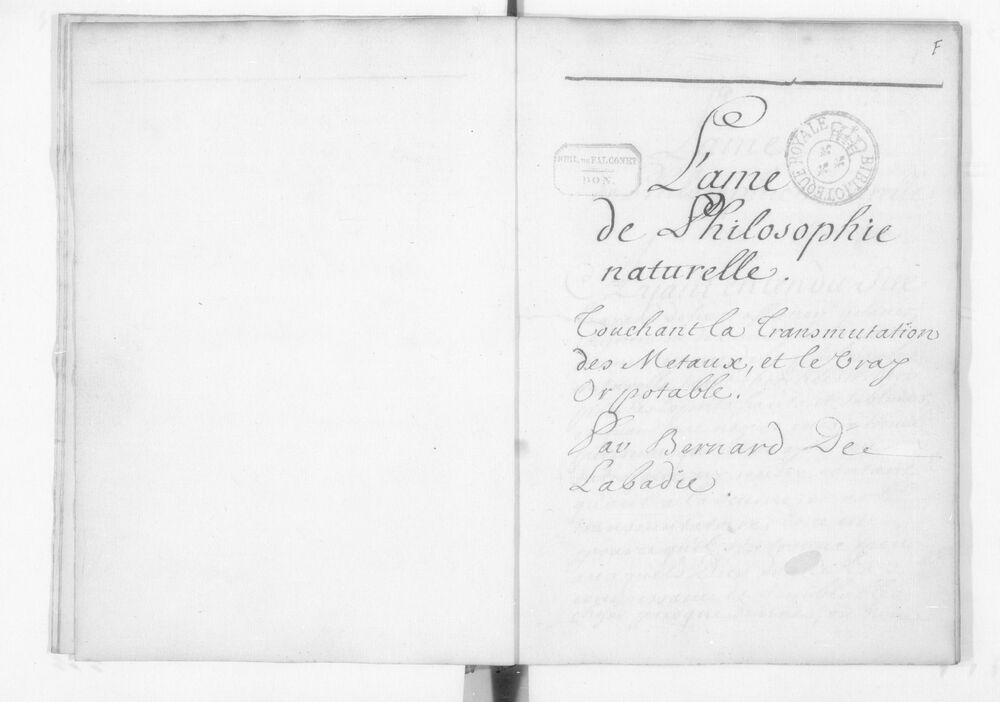 F
L'ame
BIBL. DE FALCONET
DON.
BIBLIOTEQUE ROYALE
de Philosophie
naturelle.
Touchant la Transmutation
des Metaux, et le Vray
Or potable.
Par Bernard De
Labadie.